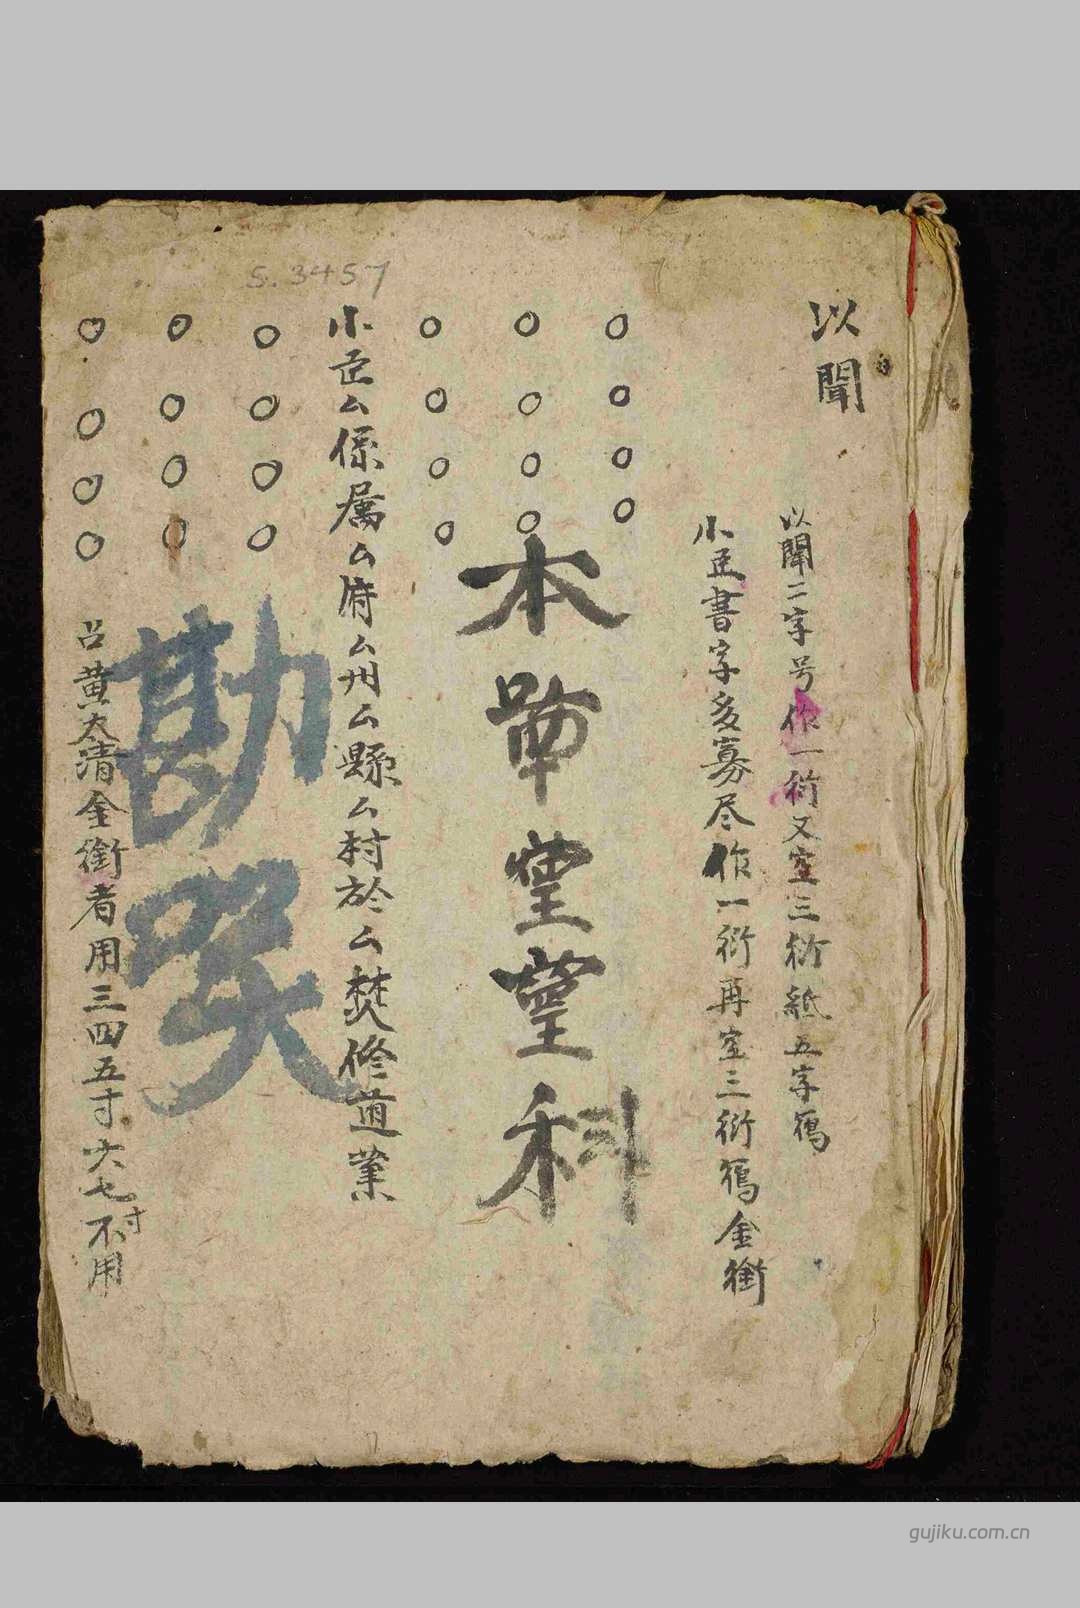 S.3457
以聞
以聞二字号作一衍又空三衍紙五字
小臣書字多寡尽作一衍再空三衍金銜
本望科
小臣厶係属厶府厶州厶縣厶村於厶焚修道業
勘
黄太清金銜者用三四五寸六七寸不用
gujiku.com.cn